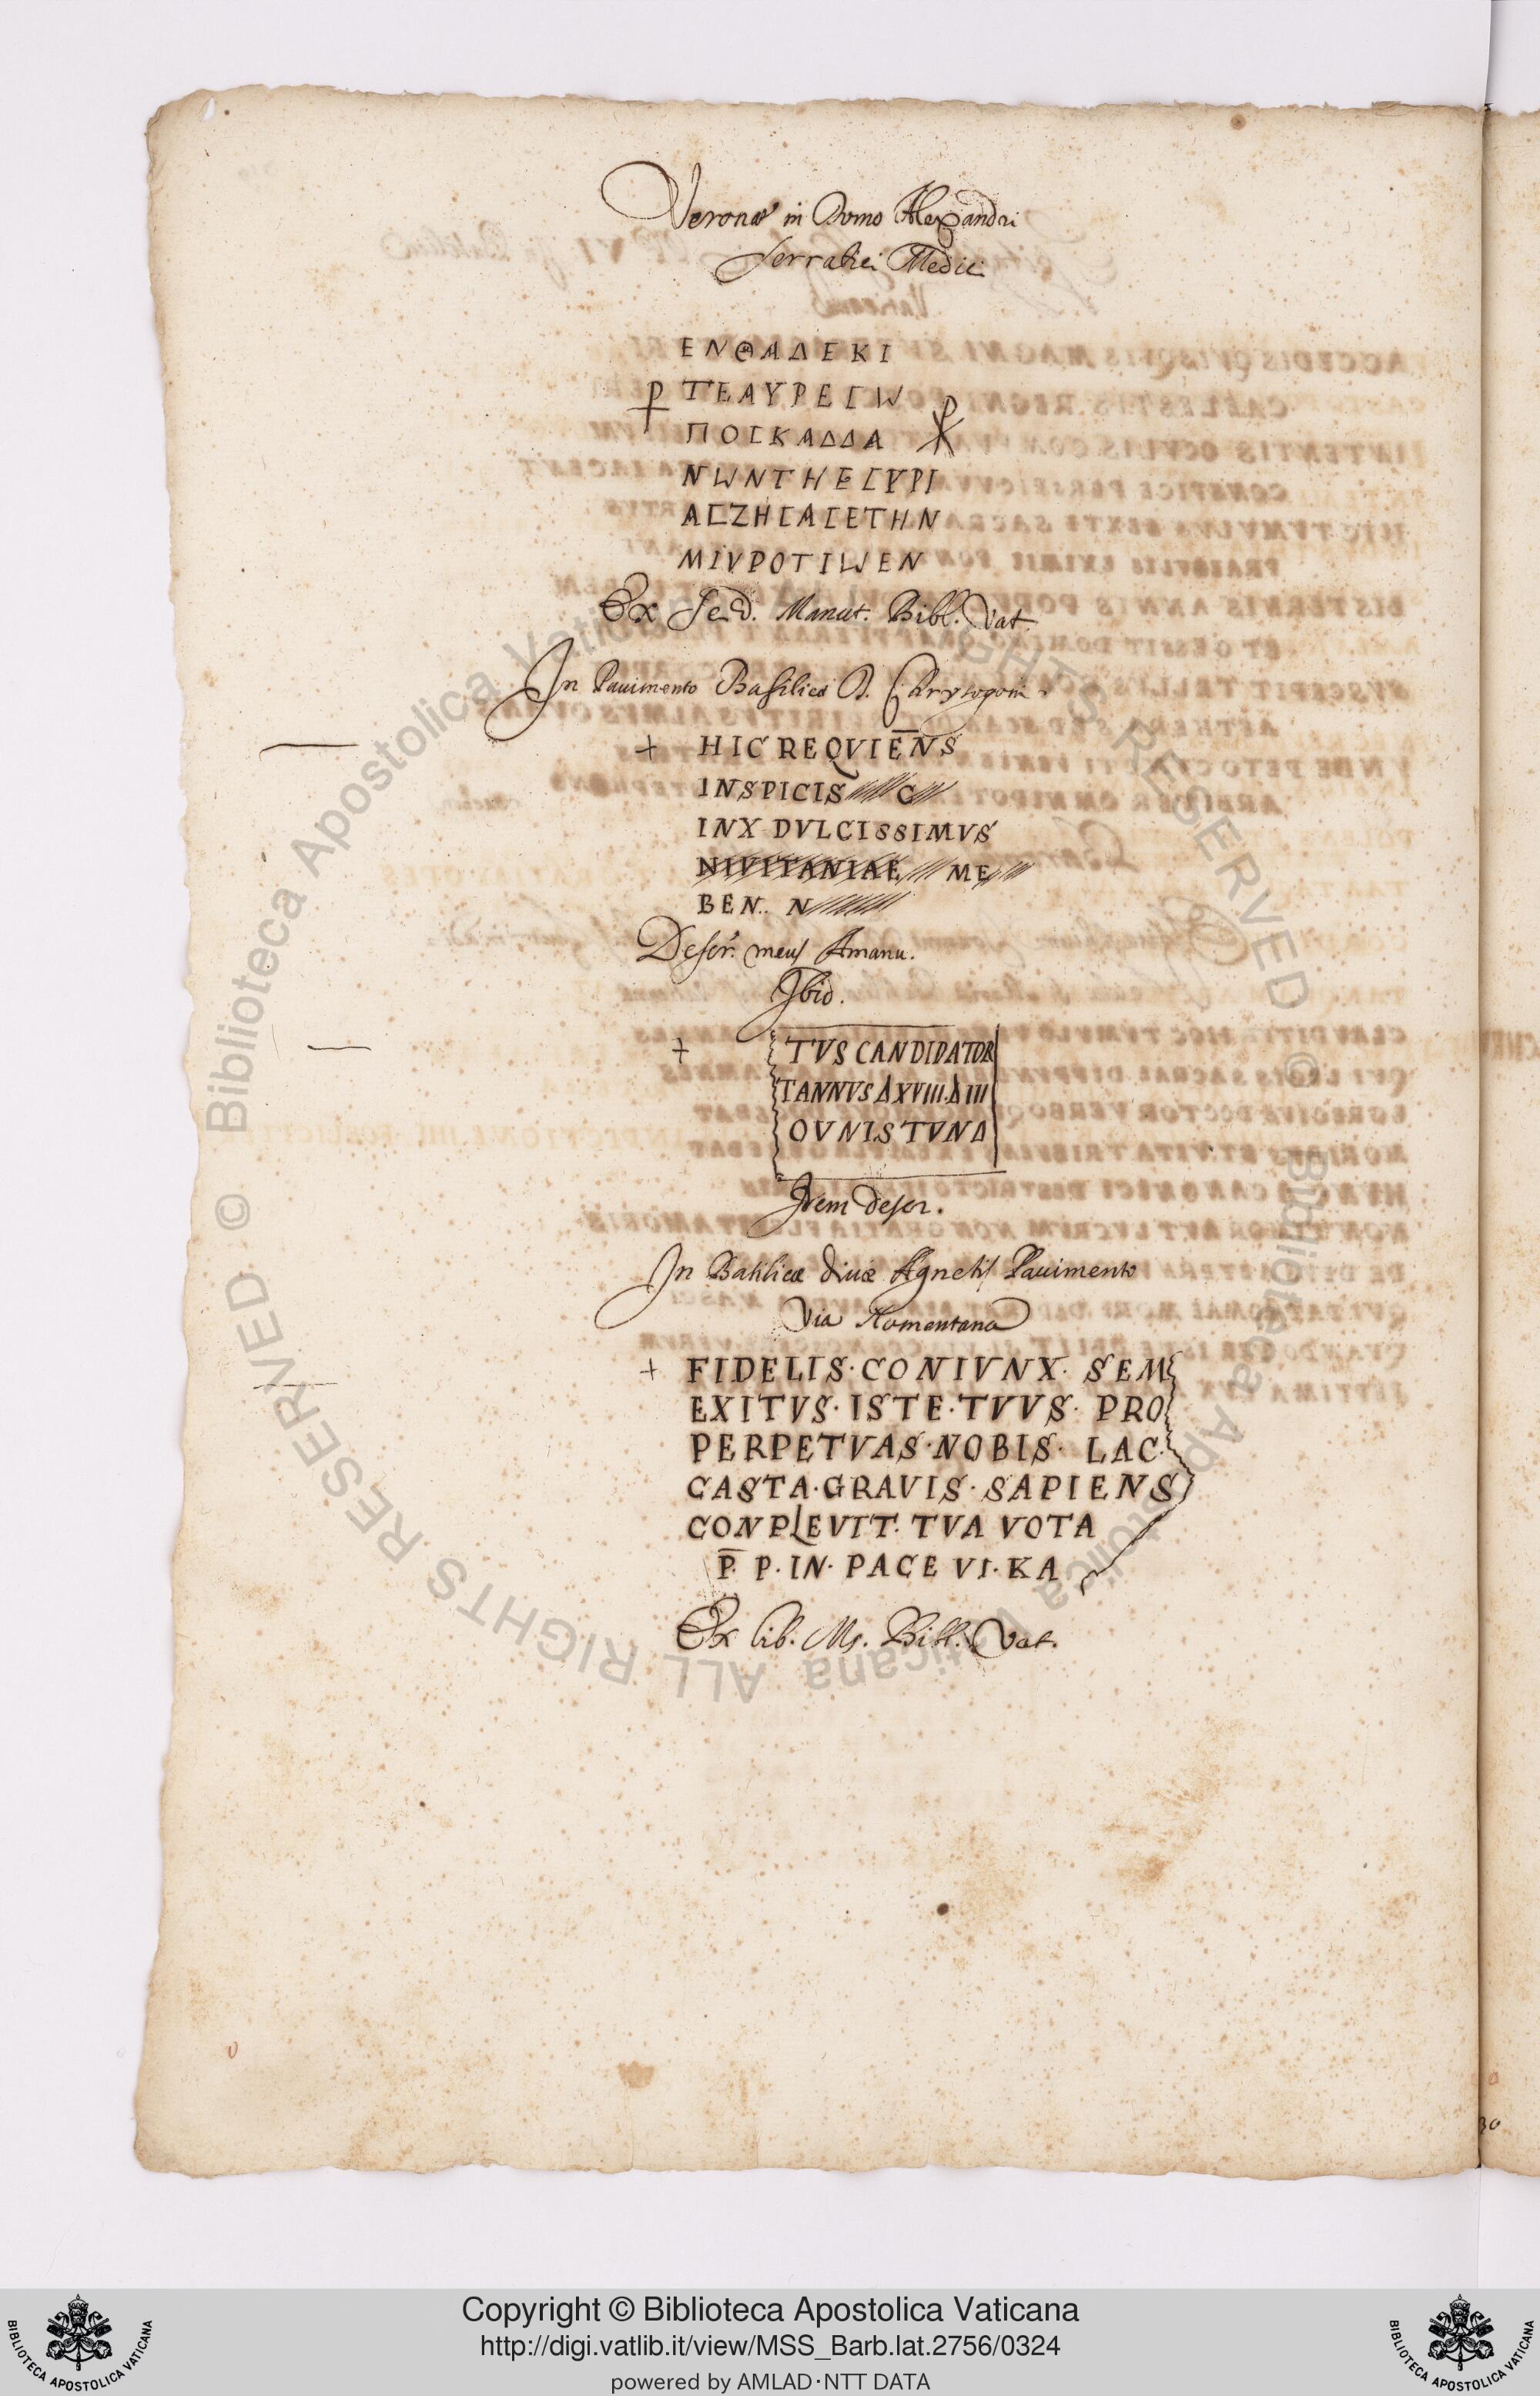 Veronæ in Domo Alexandri
Serratici Medici
ΕΝΘΑΔΕΚΙ
ΤΕΑΥΡΕΣΩ
ΠΟΣΚΑΔΔΑ
ΝΩΝΤΗΕΣΥΡΙ
ΑΣΖΗΣΑΣΕΤΗΝ
ΜΙΥΡΟΤΙΩΕΝ
Ex Sed. Manut. Bibl. Vat.
In Pauimento Basilicæ D. Chrysogoni
+ HIC REQVIEN̅S
INSPICIS C
INX DVLCISSIMVS
NIVITANIAE ME
BEN.. N
Descr. meus Amanu.
Ibid.
+ TVS CANDIDATOR
TANNVS Δ XVIII.Δ III
OVNISTVNΔ
Item descr.
In Basilicæ diuæ Agnetis Pauimento
Via Nomentana
+ FIDELIS·CONIVNX· SEM
EXITVS·ISTE·TVVS· PRO
PERPETVAS·NOBIS· LAC·
CASTA·GRAVIS·SAPIENS
CONPLEVIT· TVA VOTA
P̅. P·IN· PACE VI·KA
Ex lib. Ms. Bibl. Vat.
Copyright © Biblioteca Apostolica Vaticana
http://digi.vatlib.it/view/MSS_Barb.lat.2756/0324
powered by AMLAD·NTT DATA